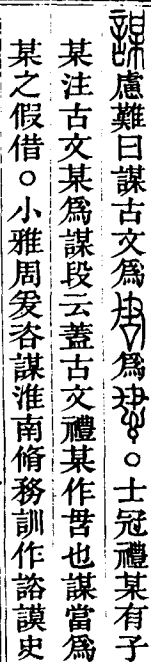 謀慮難曰謀古文爲爲。○士冠禮某有子
某注古文某爲謀段云蓋古文禮某作呣也謀當爲
某之假借○小雅周爰咨謀淮南脩務訓作諮謨史